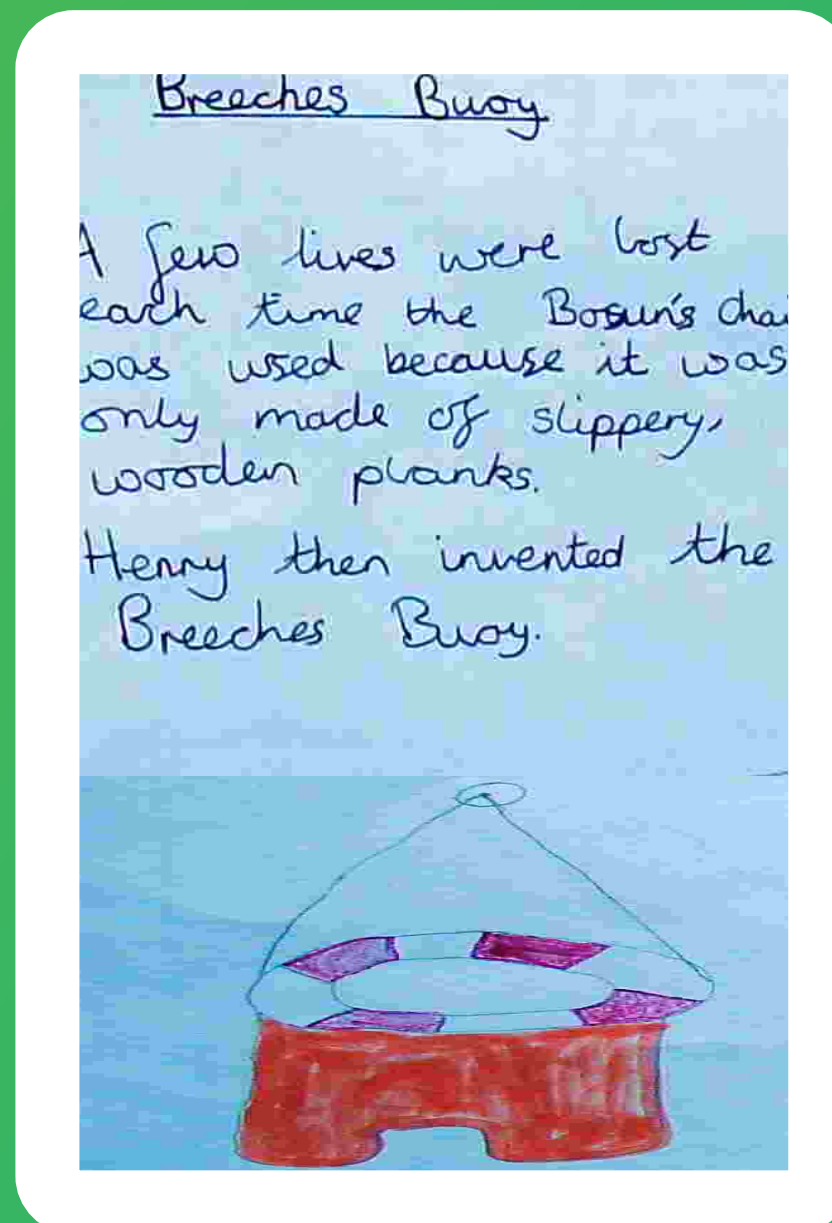 Breeches Buoy
A few lives were lost
each time the Bosun's chai
was used because it was
only made of slippery,
wooden planks.
Henny then invented the
Breeches Buoy.